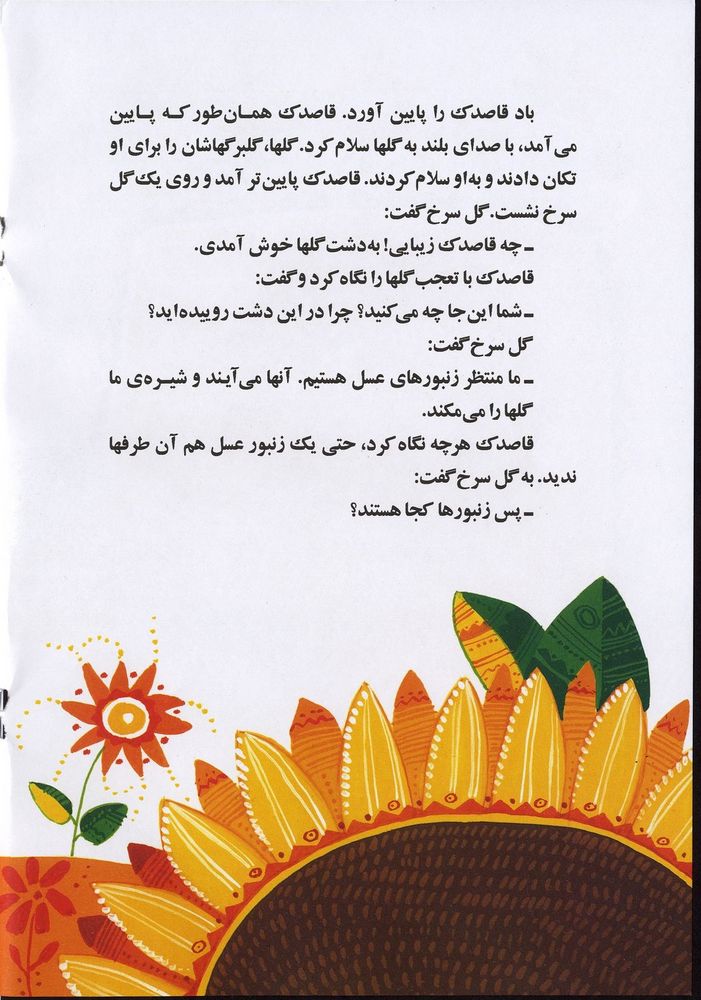 باد قاصدک را پایین آورد. قاصدک همان‌طور که پایین
می‌آمد، با صدای بلند به گلها سلام کرد. گلها، گلبرگهاشان را برای او
تکان دادند و به‌او سلام کردند. قاصدک پایین‌تر آمد و روی یک گل
سرخ نشست. گل سرخ گفت:
ـ چه قاصدک زیبایی! به‌دشت گلها خوش آمدی.
قاصدک با تعجب گلها را نگاه کرد و گفت:
ـ شما این‌جا چه می‌کنید؟ چرا در این دشت روییده‌اید؟
گل سرخ گفت:
ـ ما منتظر زنبورهای عسل هستیم. آنها می‌آیند و شیره‌ی ما
گلها را می‌مکند.
قاصدک هرچه نگاه کرد، حتی یک زنبور عسل هم آن طرفها
ندید. به گل سرخ گفت:
ـ پس زنبورها کجا هستند؟